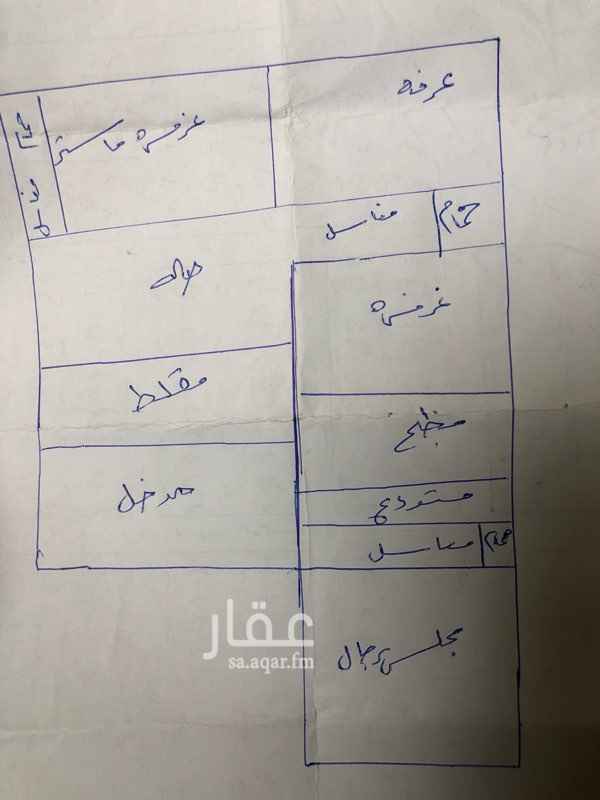 غرفه
غرفه ماستر
حمام
مغاسل
حمام
مغاسل
صاله
غرفه
مقلط
مطبخ
مدخل
مستودع
حمام
مغاسل
مجلس رجال
عقار
sa.aqar.fm